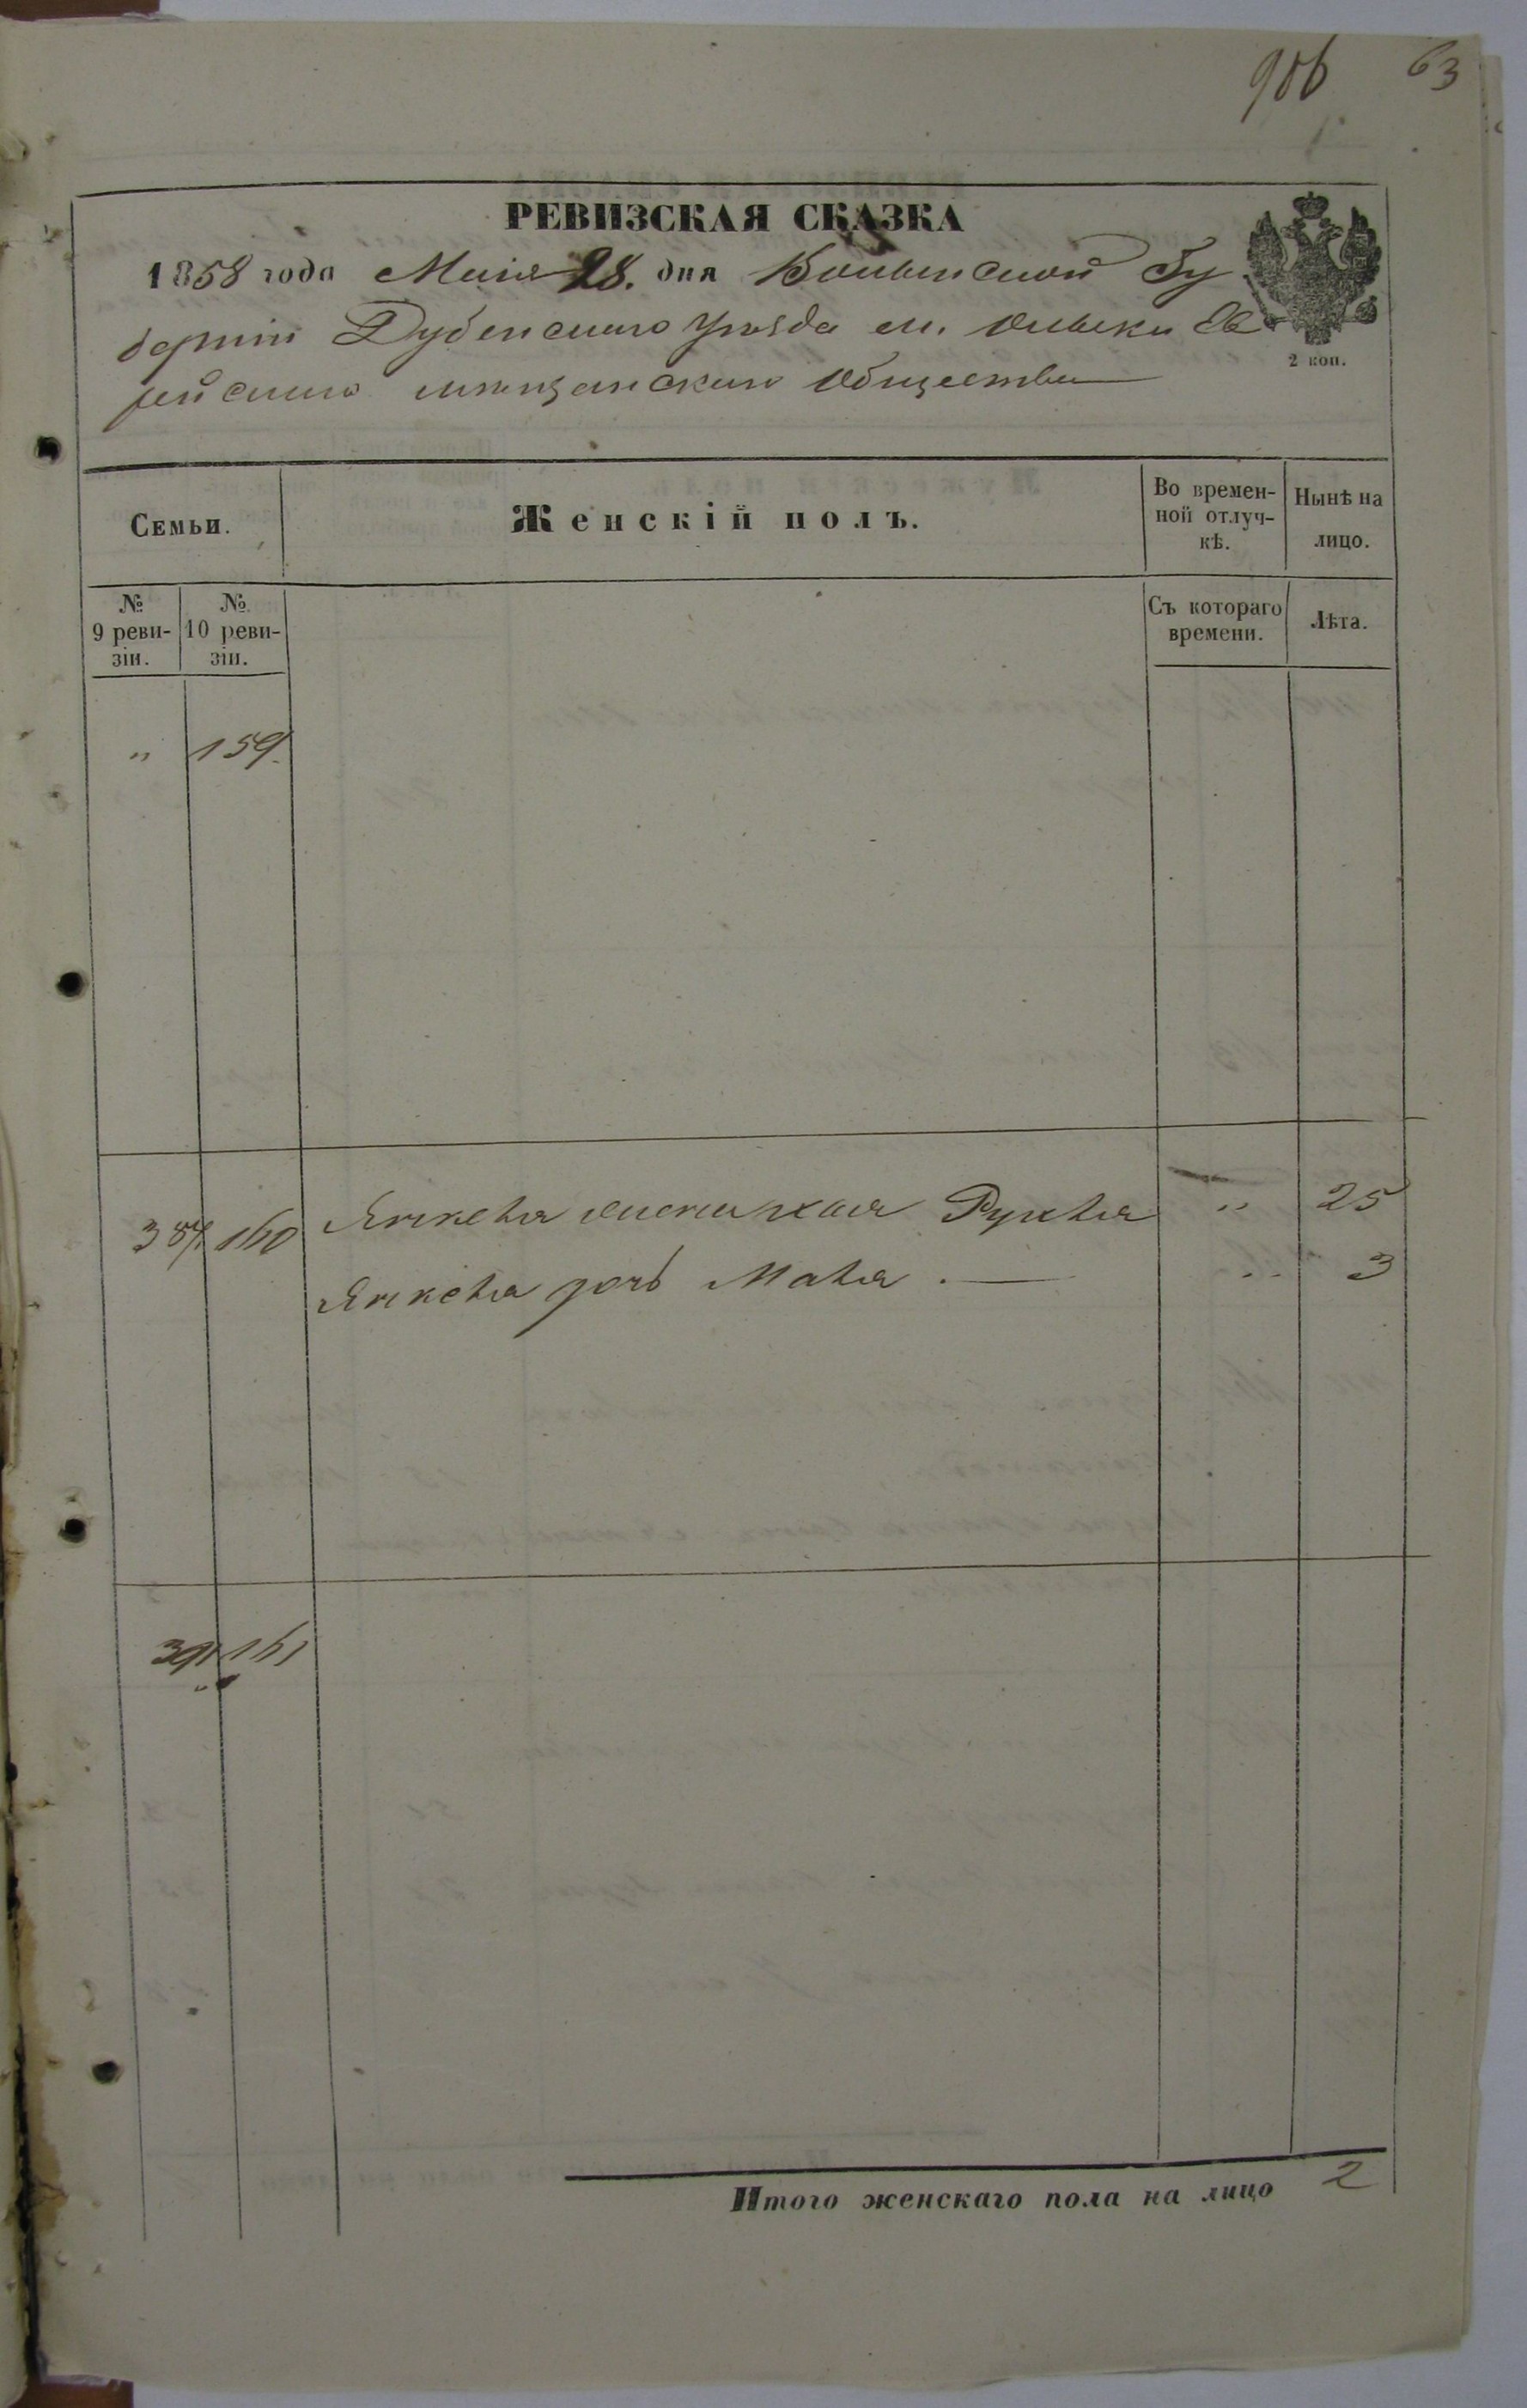 906 63
РЕВИЗСКАЯ СКАЗКА
1858 года Маія 28. дня Волынской Гу
берніи Дубенскаго уѣзда м. Олыки Ев
рейскаго мѣщанскаго общества
2 коп.
Семьи.
Женскій полъ.
Во времен-
ной отлуч-
кѣ.
Нынѣ на
лицо.
№
9 реви-
зіи.
№
10 реви-
зіи.
Съ котораго
времени.
Лѣта.
„ 159.
387. 160 Янкеля Рухля „ 25
Янкеля дочь Маля . — „ 3
391 161
Итого женскаго пола на лицо 2